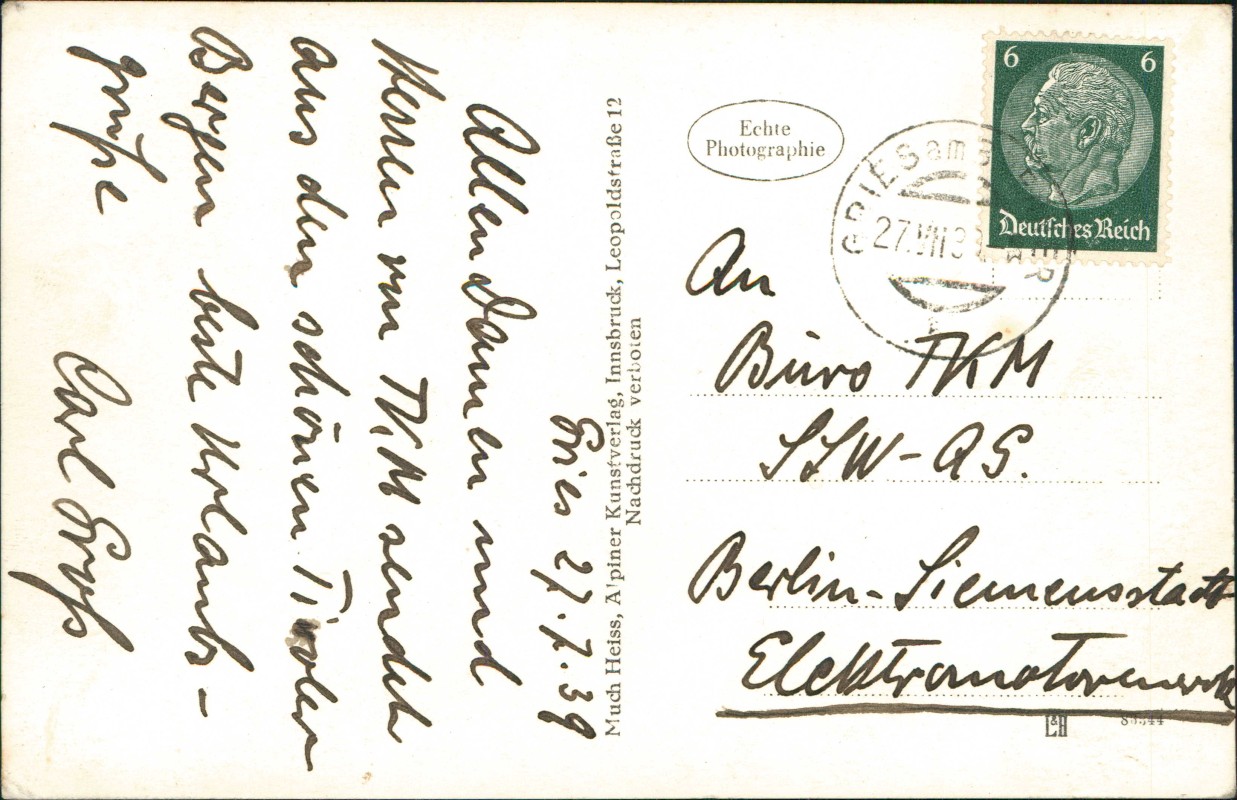 Gries 27.7.39
Allen Damen und
Herren von TKM sendet
aus den schönen Tiroler
Bergen beste Urlaubs-
grüße
Carl Groß
Much Heiss, Alpiner Kunstverlag, Innsbruck, Leopoldstraße 12
Nachdruck verboten
Echte
Photographie
6 6
Deutsches Reich
GRIES am
27.VII.3
An
Büro TKM
SSW-AG.
Berlin-Siemensstadt
Elektromotorenwerk
L&H